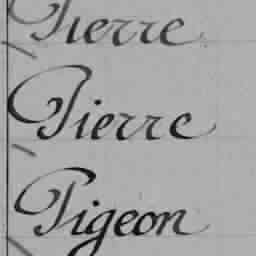 Pierre
Pierre
Pigeon